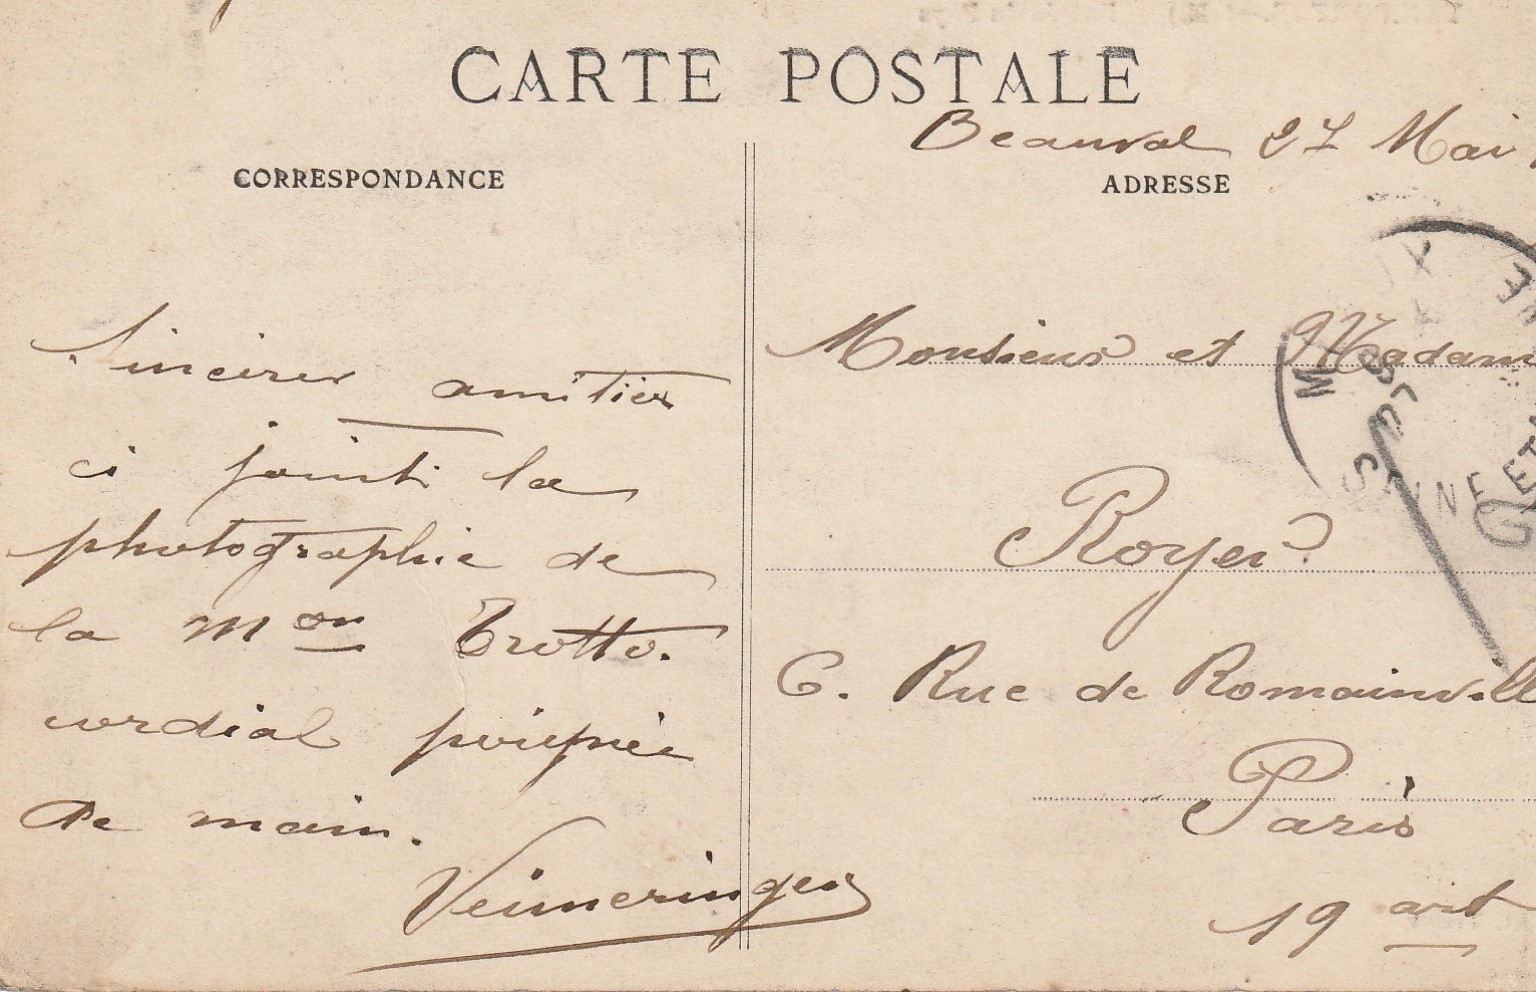 CARTE POSTALE
CORRESPONDANCE
Sincères amitiés
ci joint la
photographie de
la Mon Trotto.
cordial poignée
de main.
Veimeringer
Beauval 27 Mai
ADRESSE
Monsieur et Madam
Royer
6. Rue de Romainvill
Paris
19 art
SEINE ET